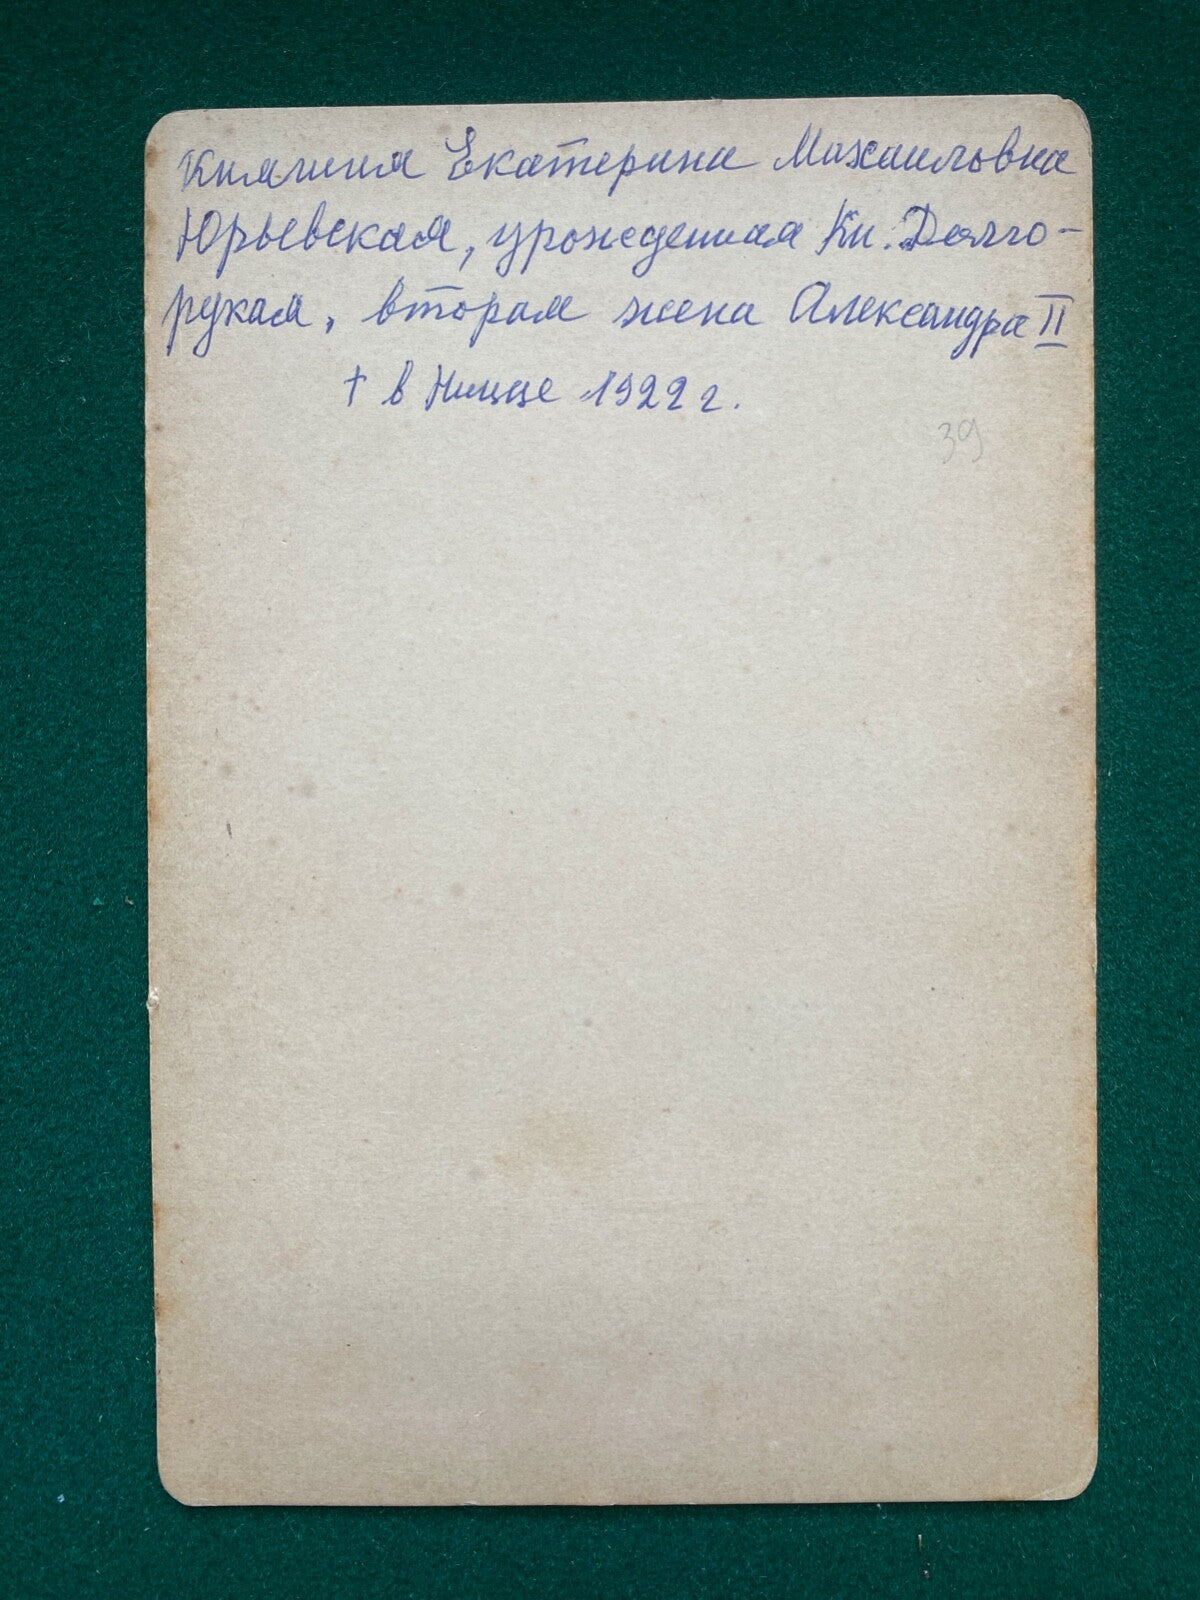 Княгиня Екатерина Михаиловна
Юрьевская, урожденная Кн. Долго-
рукая, вторая жена Александра II
† в Ницце 1922 г.
39